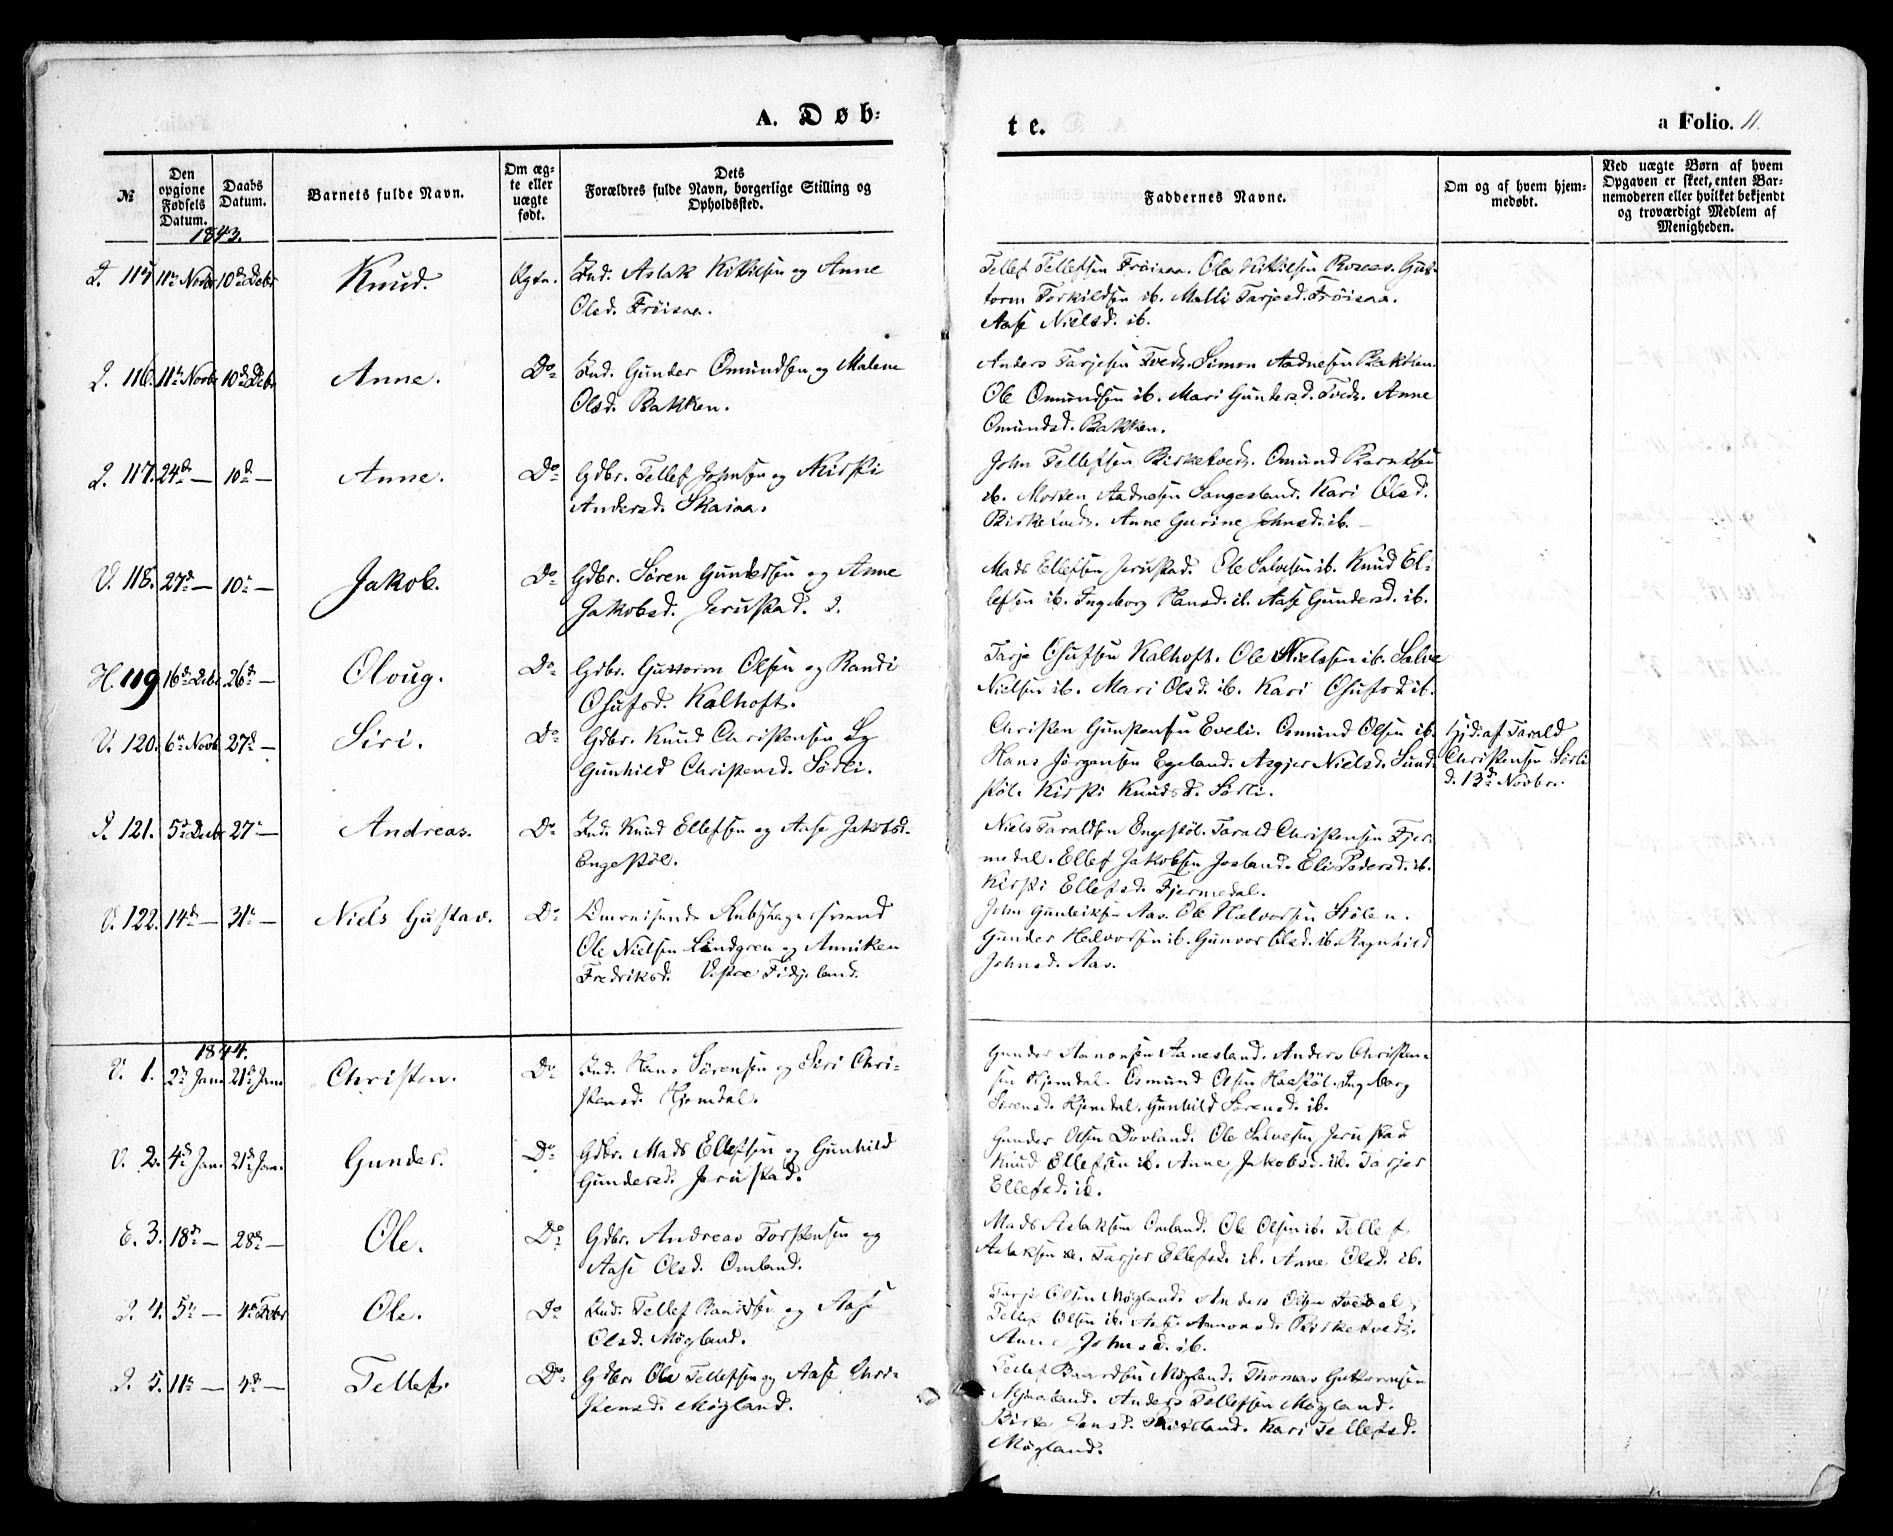 A. Døb:
te.
a Folio. 11.
№
Den opgivne Fødsels Datum.
Daabs Datum.
Barnets fulde Navn.
Om ægte eller uægte født.
Dets Forældres fulde Navn, borgerlige Stilling og Opholdssted.
Faddernes Navne.
Om og af hvem hjemmedøbt.
Ved uægte Børn af hvem Opgaven er skeet, enten Barnemoderen eller hvilket bekjendt og troværdigt Medlem af Menigheden.
1843.
115 11te Novbr 10de Debr Knud. Ægte. Ind. Aslak Kittilsen og Anne
Olsd. Frøisaa.
Tellef Tellefsen Frøisaa. Ole Kittilsen Gut-
torm Torkildsen ib. Malli Tarjesd. Frøisaa.
Aase Nielsd. ib.
116. 11te Novbr 10de Debr Anne. Do Ind. Gunder Omundsen og Malene
Olsd. Bakken.
Anders Tarjesen Tvedt. Simon Aadnesen Bakken.
Ole Omundsen ib. Mari Gundersd. Tvedt. Anne
Omundsd. Bakken.
117. 24de — 10de — Anne. Do Gdbr. Tellef Johnsen og Kirsti
Andersd. Skaiaa.
John Tellefsen Birketvedt. Omund Berntsen
ib. Morten Aadnesen Sangesland. Kari Olsd.
Birketvedt. Anne Gurine Johnsd. ib. —
V. 118. 27de — 10de — Jakob. Do Gdbr. Søren Gundersen og Anne
Jakobsd. Jerustad.
Mads Ellefsen Jerustad. Ole Salvesen ib. Knud El-
lefsen ib. Ingeborg Hansd. ib. Aase Gundersd. ib.
H. 119 16de Debr 26de — Oloug. Do Gdbr. Guttorm Olsen og Randi
Osufsd. Kalhoft.
Tarje Osufsen Kalhoft. Ole Nielssen ib. Salve
Nielsen ib. Mari Olsd. ib. Kari Osufsd. ib.
V. 120. 6te Novb. 27de — Siri. Do Gdbr. Knud Christensen og
Gunhild Christensd. Sørli.
Christen Gunstensen Eveli. Osmund Olsen ib.
Hans Jørgensen Egeland. Asgjer Nielsd. Sund-
støl. Kirsti Knudsd. Sørli.
Hjd. af Tarald
Christensen Sørli
d. 13de Novbr.
121. 5te Debr 27de — Andreas. Do Ind. Knud Ellefsen og Aase Jakobsd.
Engestøl.
Niels Taraldsen Engestøl. Tarald Christensen Fjer-
medal. Ellef Jakobsen Josland. Eli Pedersd. ib.
Kirsti Ellefsd. Fjermedal.
V. 122. 14de — 31te Niels Gustav. Do Omreisende
Ole Nielsen Lindgren og Anniken
Fredriksd. Vestre Fidjeland.
John Gunleiksen Aas. Ole Halvorsen Stølen.
Gunder Halvorsen ib. Gunvor Olsd. ib. Ragnhild
Johnsd. Aas.
1844.
V. 1. 2de Jan. 21de Jan. Christen. Do Ind. Hans Sørensen og Siri Chri-
stensd. Hjemdal.
Gunder Aanonsen Aanesland. Anders Christen-
sen Hjemdal. Osmund Olsen Haastøl. Ingeborg
Sørensd. Hjemdal. Gunhild Sørensd. ib.
V. 2. 4de Jan. 21de Jan. Gunder. Do Gdbr. Mads Ellefsen og Gunhild
Gundersd. Jerustad.
Gunder Olsen Dovland. Ole Salvesen Jerustad
Knud Ellefsen ib. Anne Jakobsd. ib. Tarjer
Ellefsd. ib.
E. 3. 18de — 28de — Ole. Do Gdbr. Andreas Torstensen og
Aase Olsd. Omland.
Mads Aslaksen Omland. Ole Olsen ib. Tellef
Aslaksen ib. Tarjer Ellefsd. ib. Anne Olsd. ib.
4. 5te — 4de Febr Ole. Do Ind. Tellef Baardsen og Aase
Olsd. Møgland.
Tarje Olsen Møgland. Anders Olsen
Tellef Olsen ib. Aase Aanonsd. Birketvedt.
Anne Johnsd. ib.
5. 11te — 4de — Tellef. Do Gdbr. Ole Tellefsen og Aase Chri-
stensd. Møgland.
Tellef Baardsen Møgland. Thomas Guttormsen
Mjaaland. Anders Tellefsen Møgland.
Jensd. Kari Tellefsd.
Møgland.